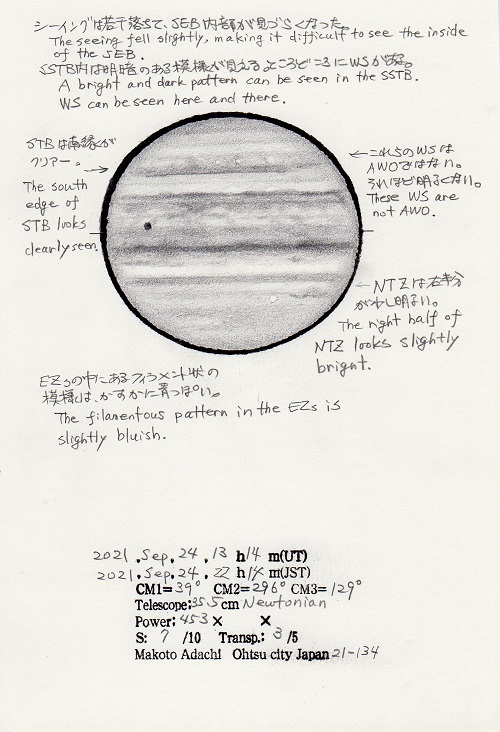 シーイングは若干落ちて、SEB内部が見づらくなった
The seeing fell slightly, making it difficult to see the inside
of the SEB.
SSTB内は明暗のある模様が見える。ところどころにWSがある。
A bright and dark pattern can be seen in the SSTB.
WS can be seen here and there.
STBは南縁が
クリアー。
The south
edge of
STB looks
clearly seen.
これらのWSは
AWOではない。
それほど明るくない。
These WS are
not AWO.
NTZは右半分
が少し明るい。
The right half of
NTZ looks slightly
bright.
EZsの中にあるフィラメント状の
模様は、かすかに青っぽい。
The filamentous pattern in the EZs is
slightly bluish.
2021.Sep.24.13h14m(UT)
2021.Sep.24.22h14m(JST)
CM1=39° CM2=296° CM3=129°
Telescope:35.5cm Newtonian
Power:453× ×
S: 7 /10 Transp.: 3 /5
Makoto Adachi Ohtsu city Japan 21-134